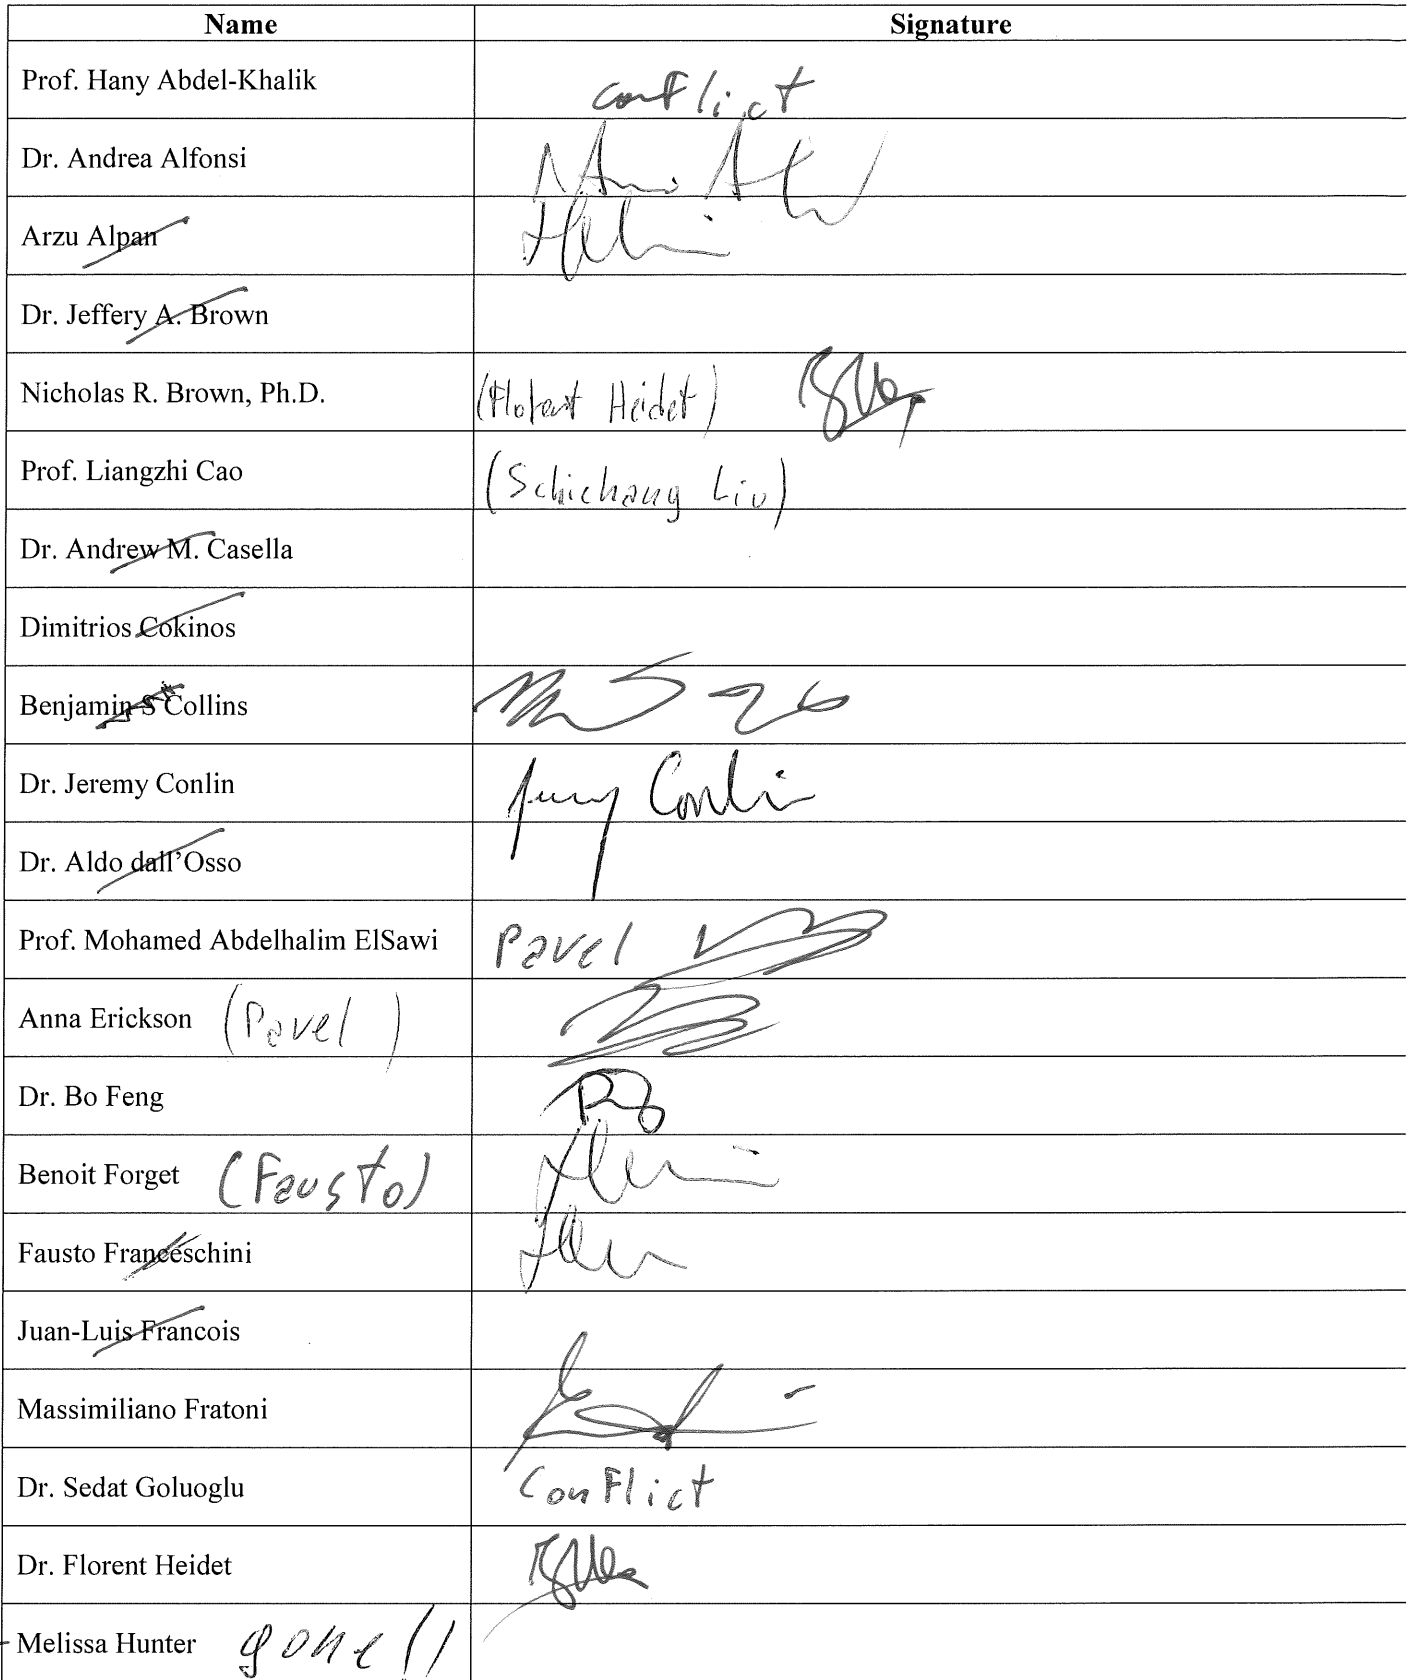 Name Signature
Prof. Hany Abdel-Khalik conflict
Dr. Andrea Alfonsi
Arzu Alpan
Dr. Jeffery A. Brown
Nicholas R. Brown, Ph.D. (Florent Heidet)
Prof. Liangzhi Cao (Schichang Liu)
Dr. Andrew M. Casella
Dimitrios Cokinos
Benjamin S Collins
Dr. Jeremy Conlin Jeremy Conlin
Dr. Aldo dall'Osso
Prof. Mohamed Abdelhalim ElSawi Pavel
Anna Erickson (Pavel)
Dr. Bo Feng
Benoit Forget (Fausto)
Fausto Franceschini
Juan-Luis Francois
Massimiliano Fratoni
Dr. Sedat Goluoglu Conflict
Dr. Florent Heidet
Melissa Hunter gone!!